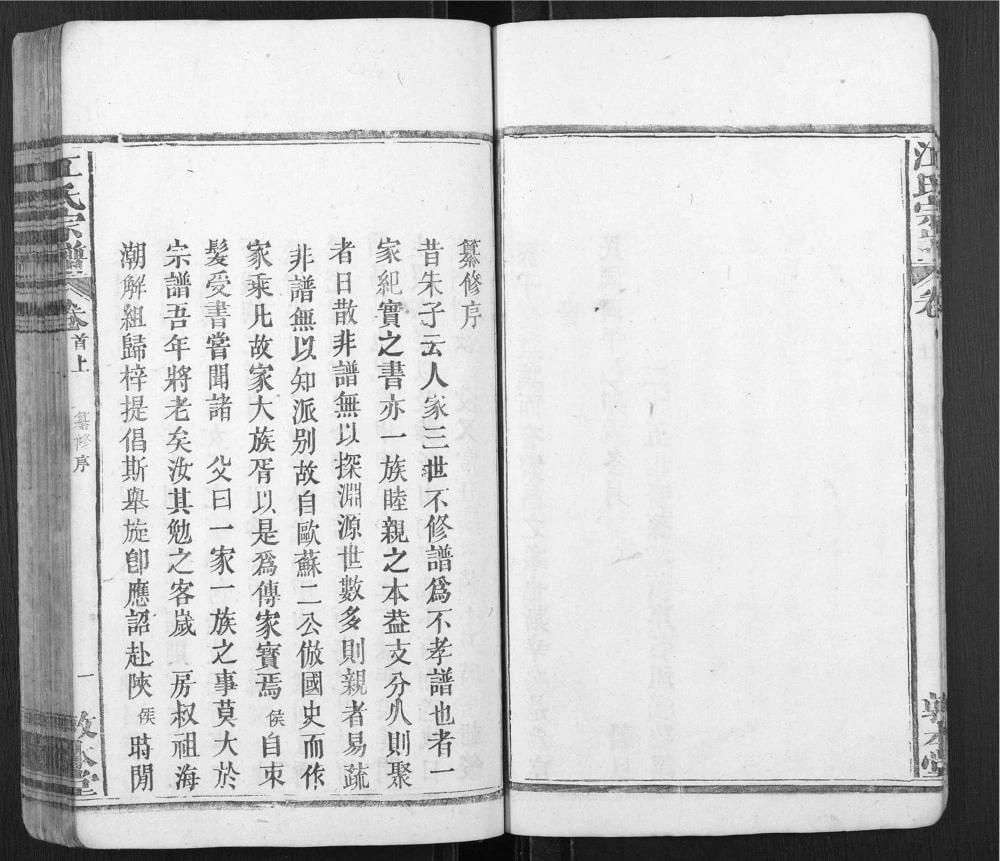 江氏宗譜
卷
敦本堂
纂修序
昔朱子云人家三世不修譜爲不孝譜也者一
家紀實之書亦一族睦親之本葢支分𠆤則聚
者日散非譜無以探淵源世數多則親者易疏
非譜無以知派别故自歐蘇二公倣國史而作
家乘凢故家大族胥以是爲傳家寳焉侯自束
髮受書嘗聞諸父曰一家一族之事莫大於
宗譜吾年將老矣汝其勉之客嵗房叔祖海
潮解組歸梓提倡斯舉旋卽應詔赴陝侯時閒
江氏宗譜
卷首上
纂修序
一
敦本堂